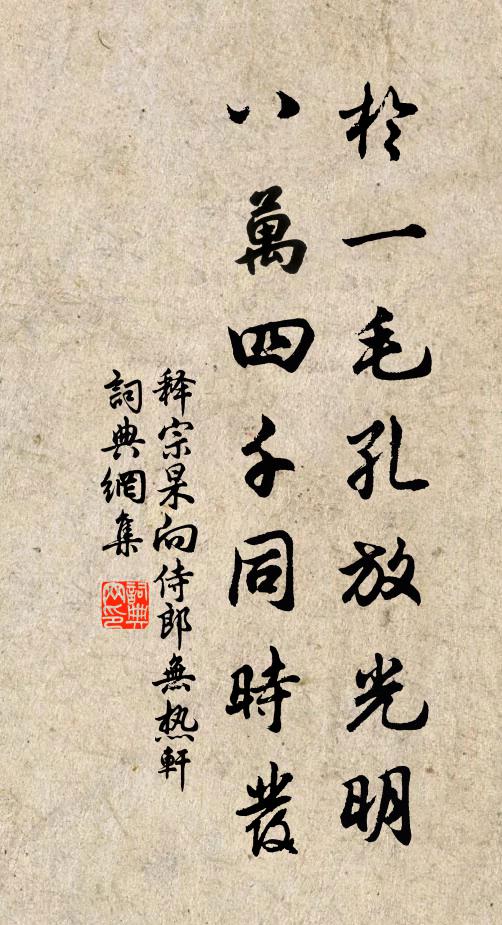 於一毛孔放光明
八萬四千同時發
释宗杲向侍郎無热軒
詞典網集
詞典網印